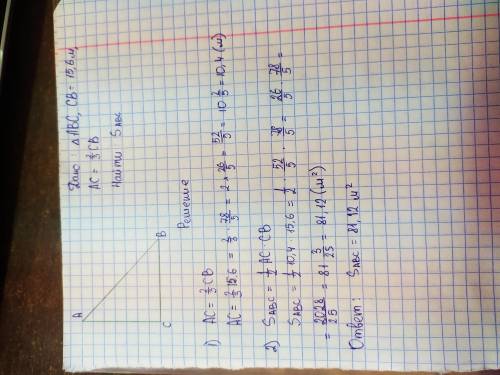 Дано: △ABC, CB = 15,6 м,
AC = 2/3 CB
Найти S_ABC
A
B
C
Решение
1) AC = 2/3 CB
AC = 2/3 15,6 = 2/3 · 78/5 = 2 · 26/5 = 52/5 = 10 2/5 = 10,4 (м)
2) S_ABC = 1/2 AC · CB
S_ABC = 1/2 10,4 · 15,6 = 1/2 · 52/5 · 78/5 = 26/5 · 78/5 =
= 2028/25 = 81 3/25 = 81,12 (м²)
Ответ: S_ABC = 81,12 м²